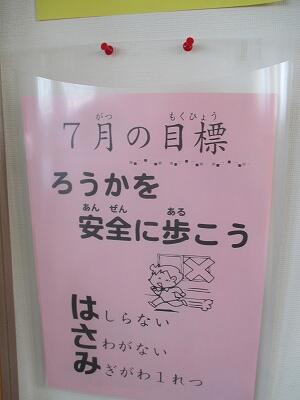 7月の目標
がつ もくひょう
ろうかを
安全に歩こう
あん ぜん ある
はしらない
さわがない
みぎがわ1れつ